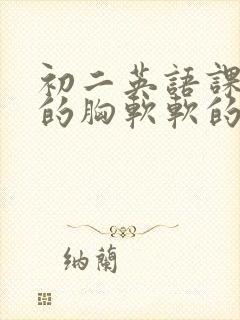 初二英語課
的胸軟軟的
納蘭